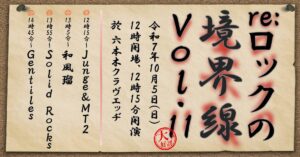 re:ロックの
境界線
Vol.11
令和7年10月5日(日)
12時開場、12時15分開演
於 六本木クラヴエッヂ
①12時15分〜Junge&MT2
②13時05分〜和風瑠
③13時55分〜Solid Rocks
④14時45分〜Gentiles